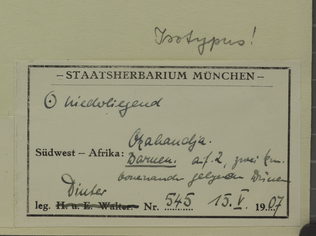 Isotypus!
- STAATSHERBARIUM MÜNCHEN -
⊙ niederliegend
Okahandja.
Südwest - Afrika: Barmen. auf 2, zwei km.
voneinander gelegenen Dünen
Dinter
leg. H. u. E. Walter. Nr. 545 15. V. 1907